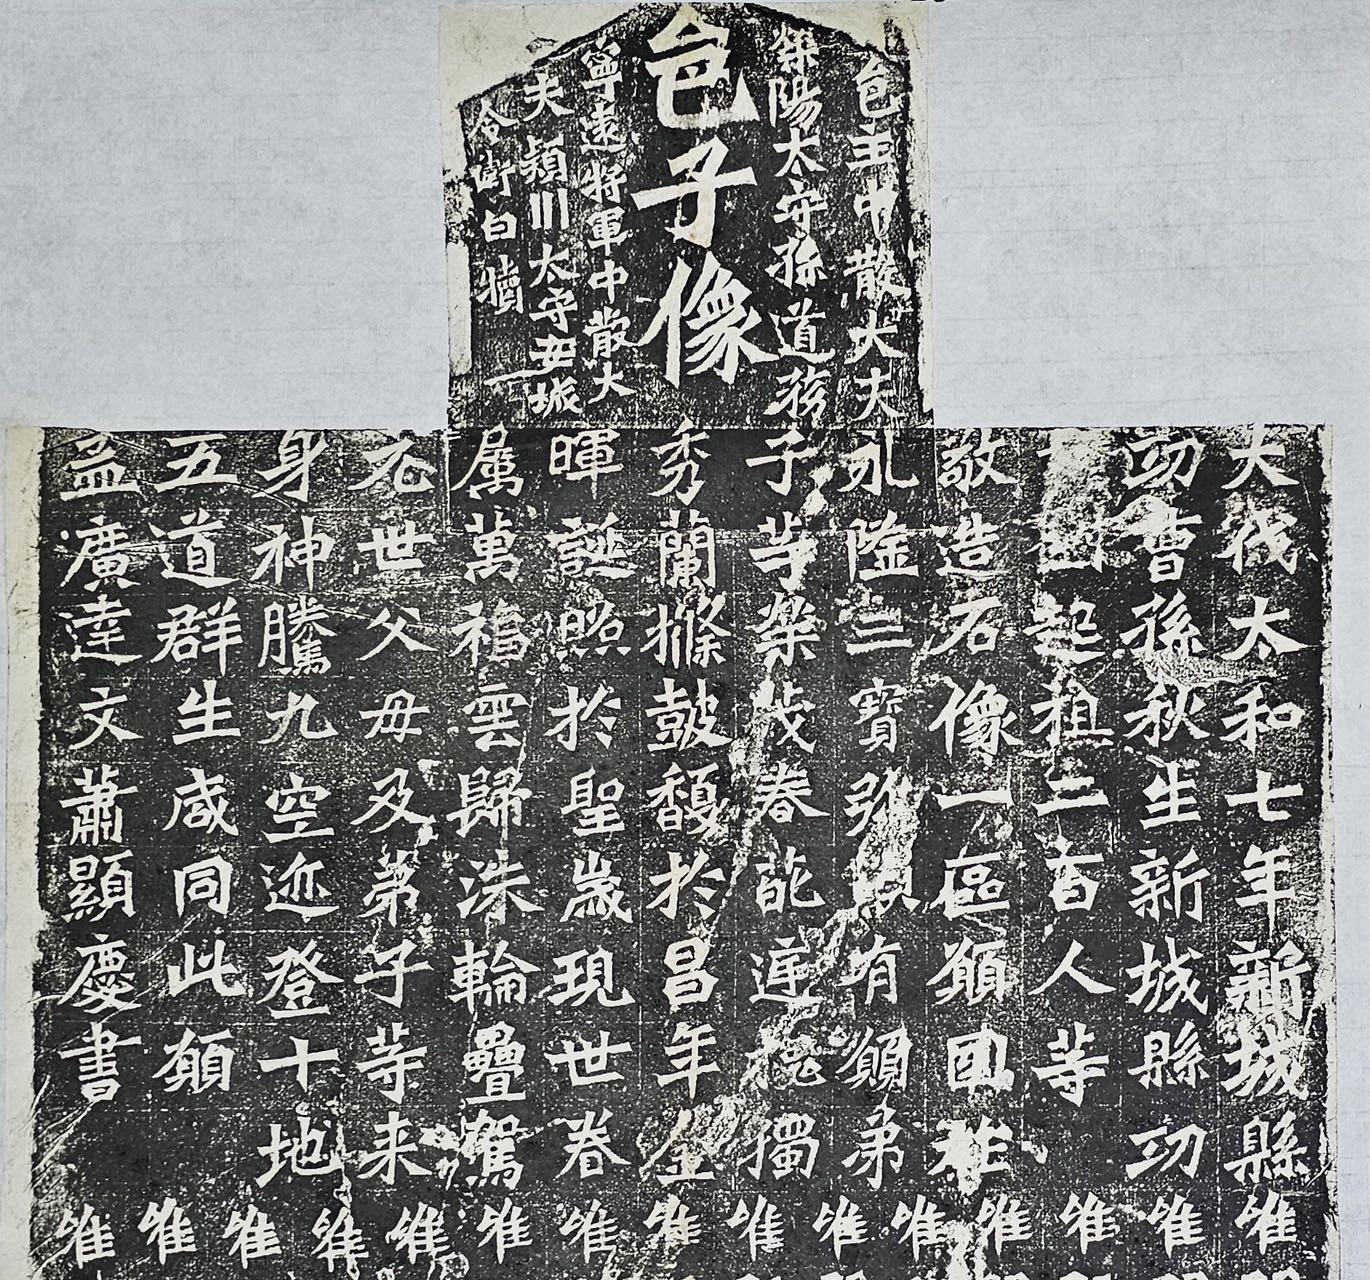 邑主中散大夫
滎陽太守孫道務
邑子像
寧遠將軍中散大
夫頴川太守安城
令衛白犢
大伐太和七年新城縣
功曹孫秋生新城縣功
劉起祖二百人等
敬造石像一區願國祚
永隆三寶弥顕有願弟
子等榮茂春葩庭槐獨
秀蘭條鼓馥於昌年金
暉誕照於聖歲現世眷
属萬福雲歸洙輪疊駕
元世父母及弟子等来
身神騰九空迹登十地
五道群生咸同此願
孟廣達文蕭顯慶書
唯唯唯唯唯唯唯唯唯唯唯唯唯唯唯